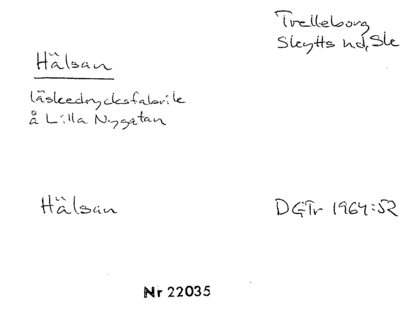 Trelleborg
Skytts hd, Sk
Hälsan
läskedrycksfabrik
å Lilla Nygatan
Hälsan
DGTr 1964:52
Nr 22035